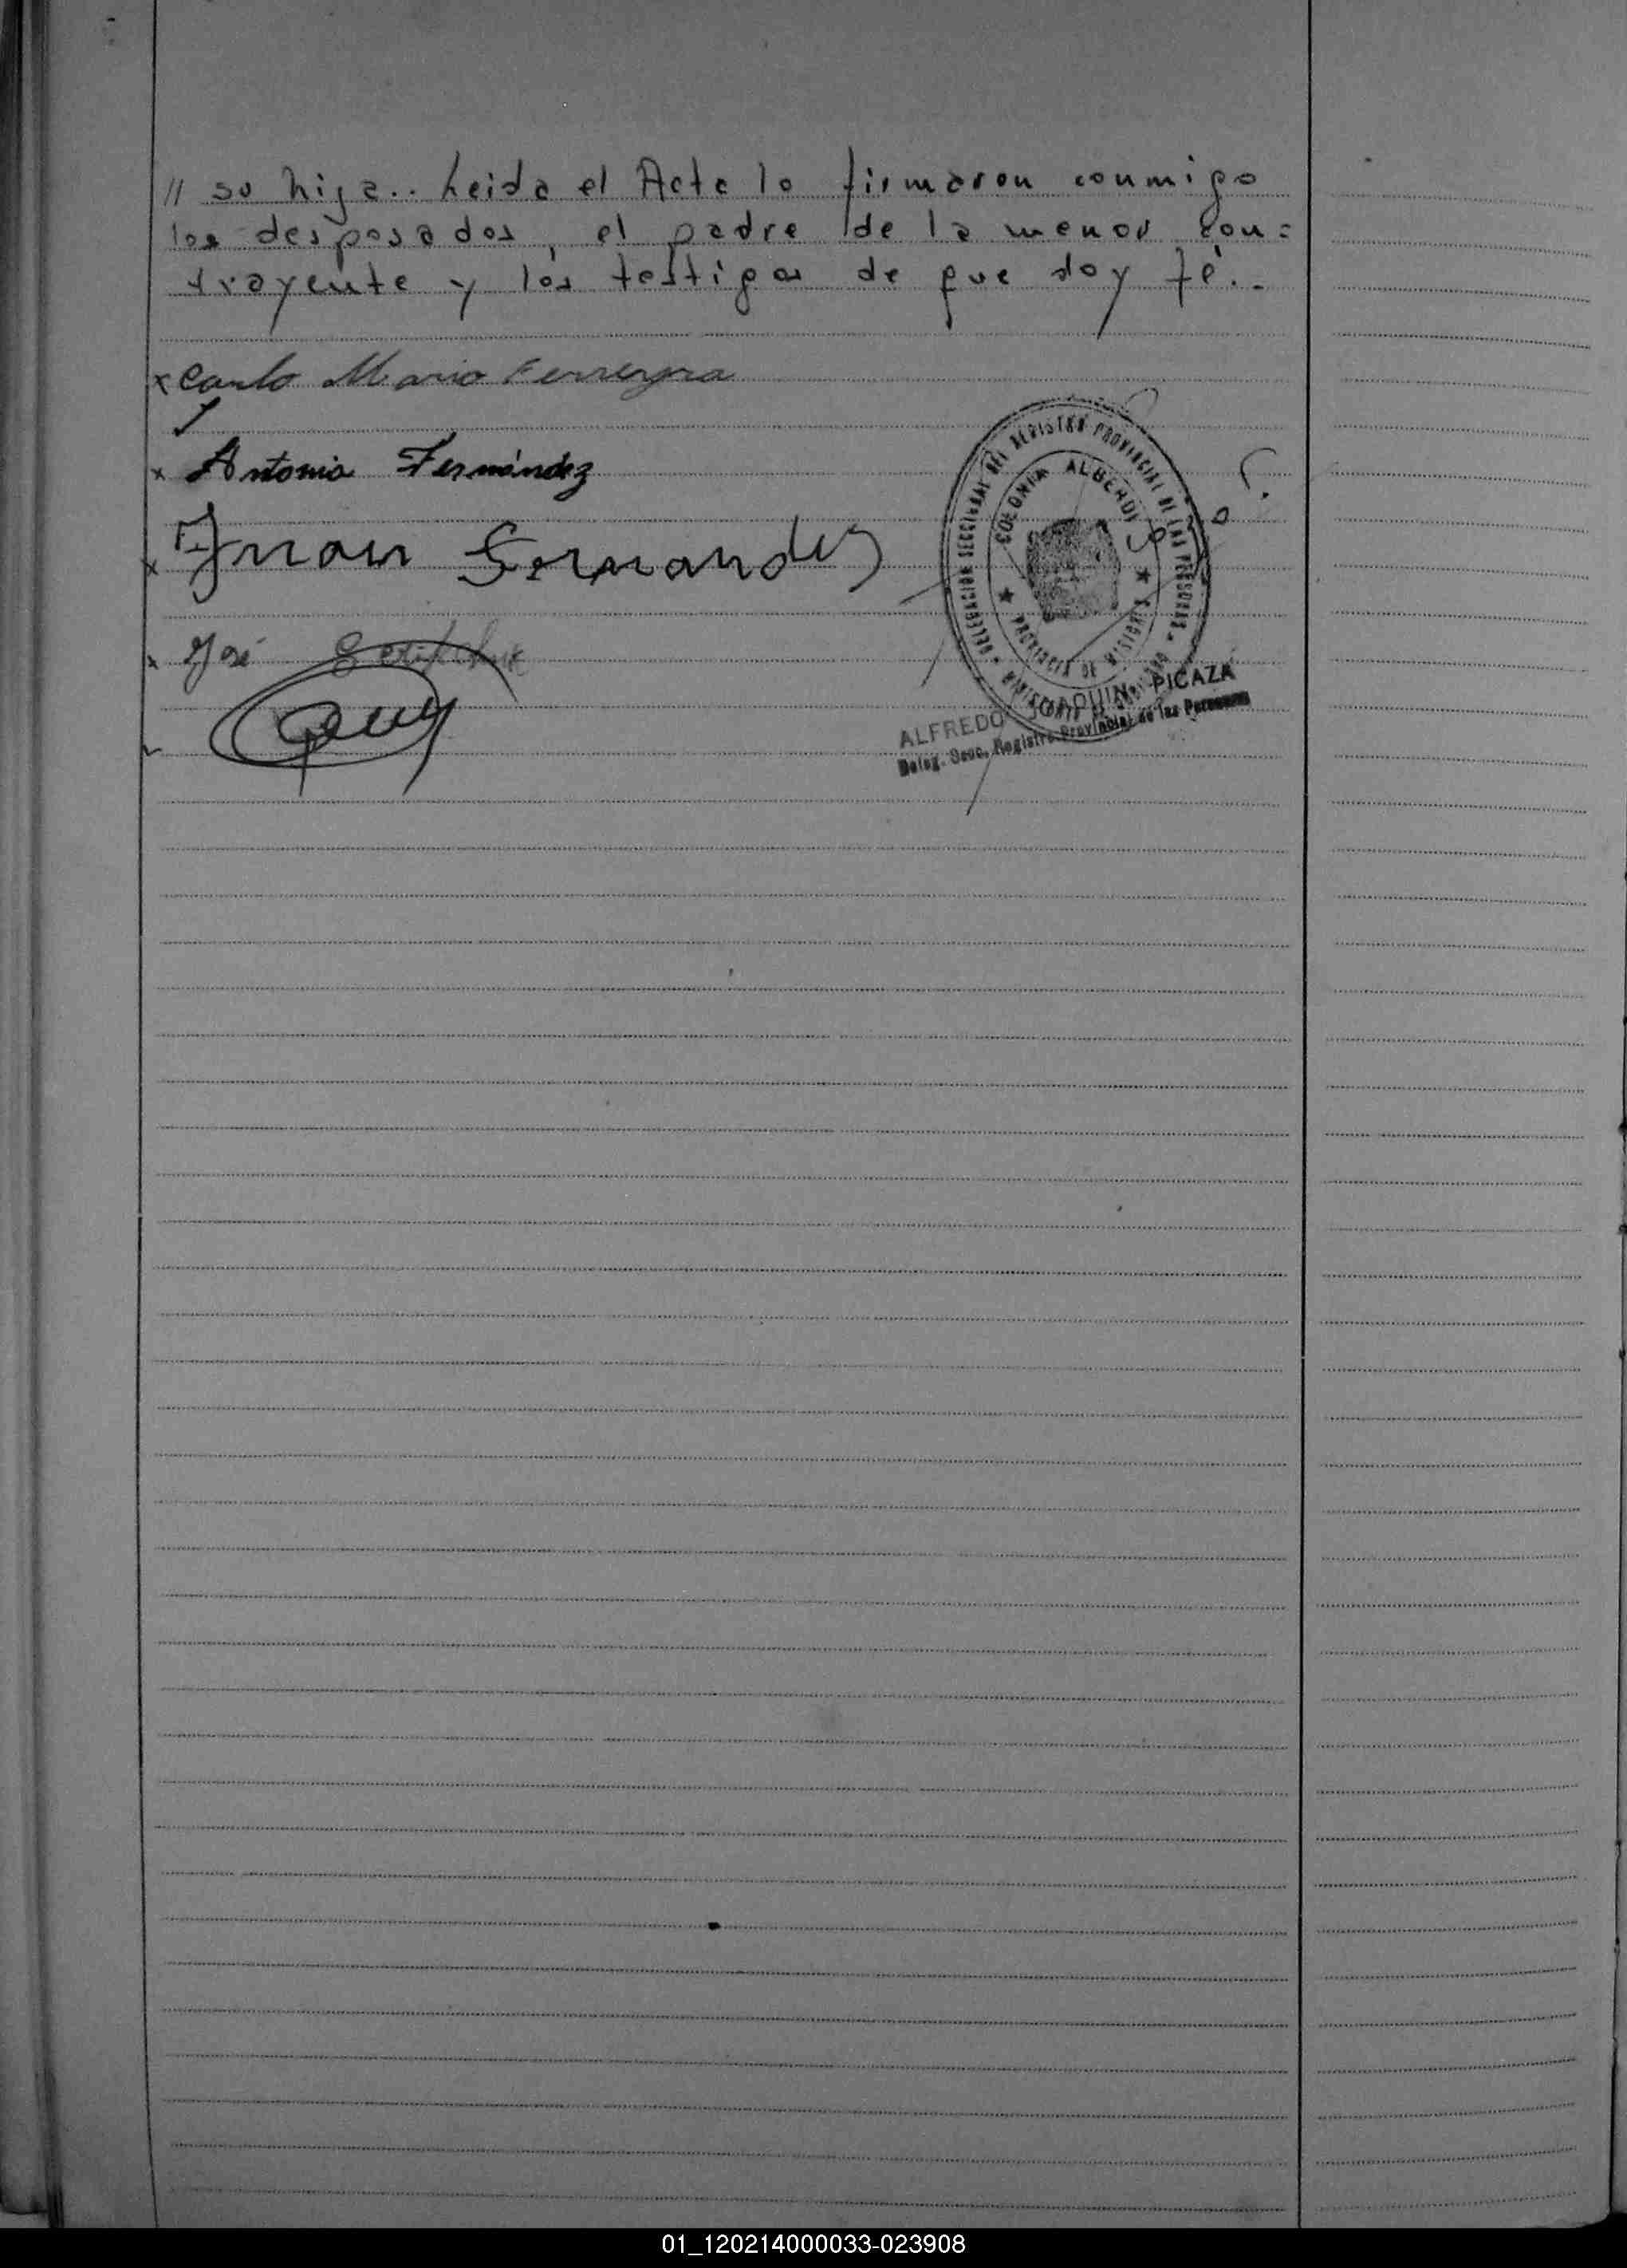 // su hija.. Leida el Acta lo firmaron conmigo
los desposados, el padre de la menor con=
trayente y los testigos de que doy fé..
x Carlo Mario Ferreyra
x Antonia Fernández
x Juan Fernandez
x José
DELEGACION SECCIONAL DEL REGISTRO PROVINCIAL DE LAS PERSONAS
COLONIA ALBERDI
★ PROVINCIA DE MISIONES ★
ALFREDO JOAQUIN PICAZA
Deleg. Secc. Registro Provincial de las Personas
01_120214000033-023908